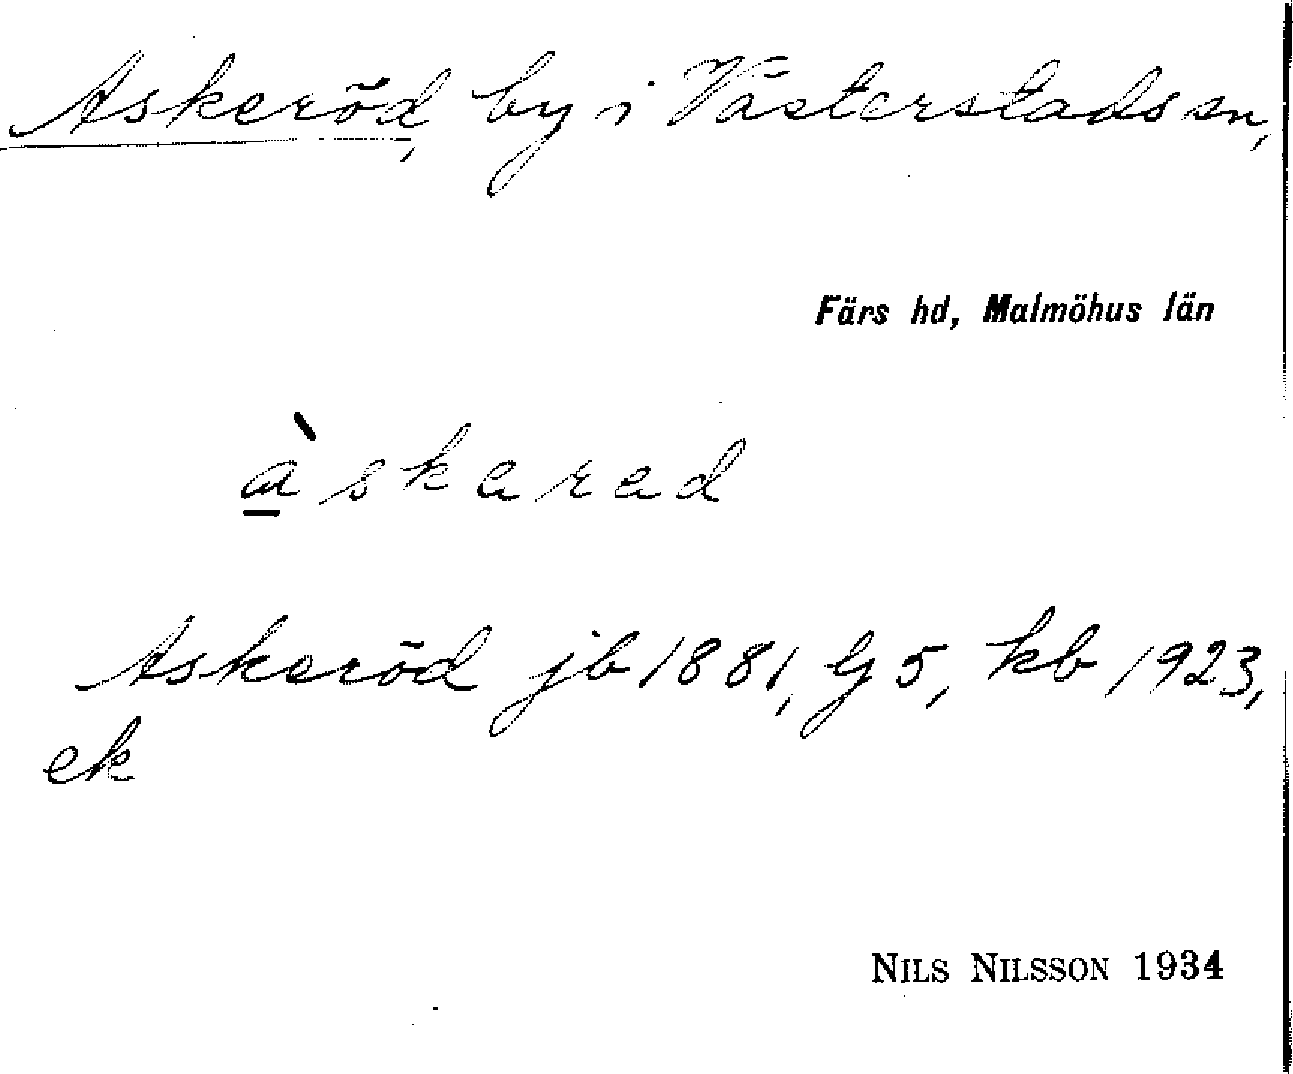 Askeröd, by i Västerstads sn,
Färs hd, Malmöhus län
àskarad
Askeröd jb 1881, G 5, kb 1923,
ek
NILS NILSSON 1934